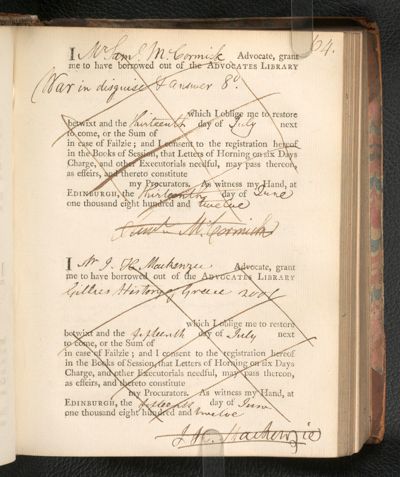 164.
I Mr Saml. McCormick Advocate, grant
me to have borrowed out of the ADVOCATES LIBRARY
(War in disguise & answer 8o.
which I oblige me to restore
betwixt and the thirteenth day of July next
to come, or the Sum of
in case of Failzie; and I consent to the registration hereof
in the Books of Session, that Letters of Horning on six Days
Charge, and other Executorials needful, may pass thereon,
as effeirs, and thereto constitute
my Procurators. As witness my Hand, at
EDINBURGH, the thirteenth day of June
one thousand eight hundred and twelve
Saml. McCormick
I Mr J. H. Mackenzie Advocate, grant
me to have borrowed out of the ADVOCATES LIBRARY
Gillies History of Greece
which I oblige me to restore
betwixt and the fifteenth day of July next
to come, or the Sum of
in case of Failzie; and I consent to the registration hereof
in the Books of Session, that Letters of Horning on six Days
Charge, and other Executorials needful, may pass thereon,
as effeirs, and thereto constitute
my Procurators. As witness my Hand, at
EDINBURGH, the fifteenth day of June
one thousand eight hundred and twelve
J. H. Mackenzie